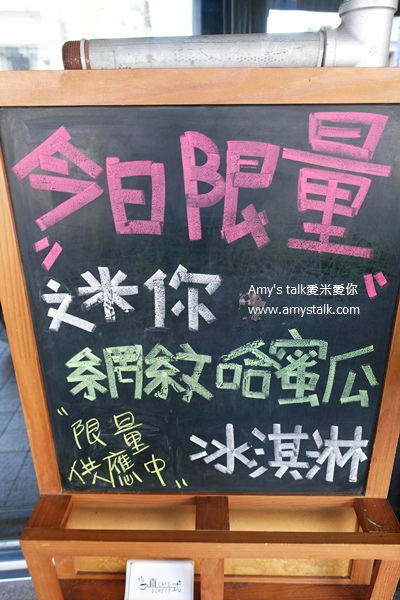 "今日限量"
迷你
Amy's talk愛米愛你
www.amystalk.com
網紋哈蜜瓜
"限量
供應中"
冰淇淋